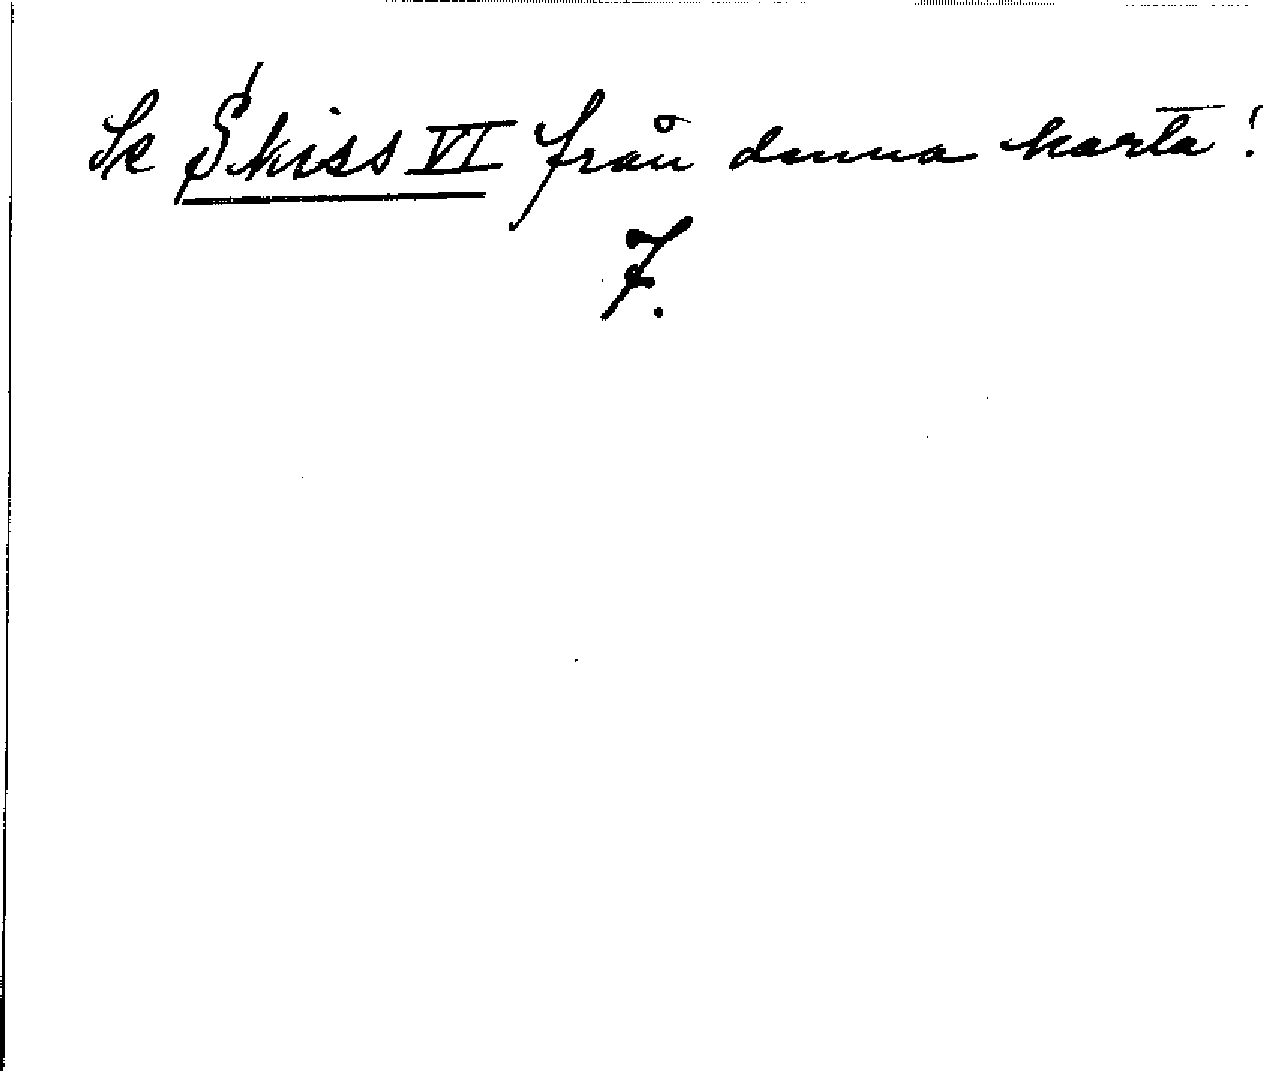 Se Skiss VI från denna karta!
7.